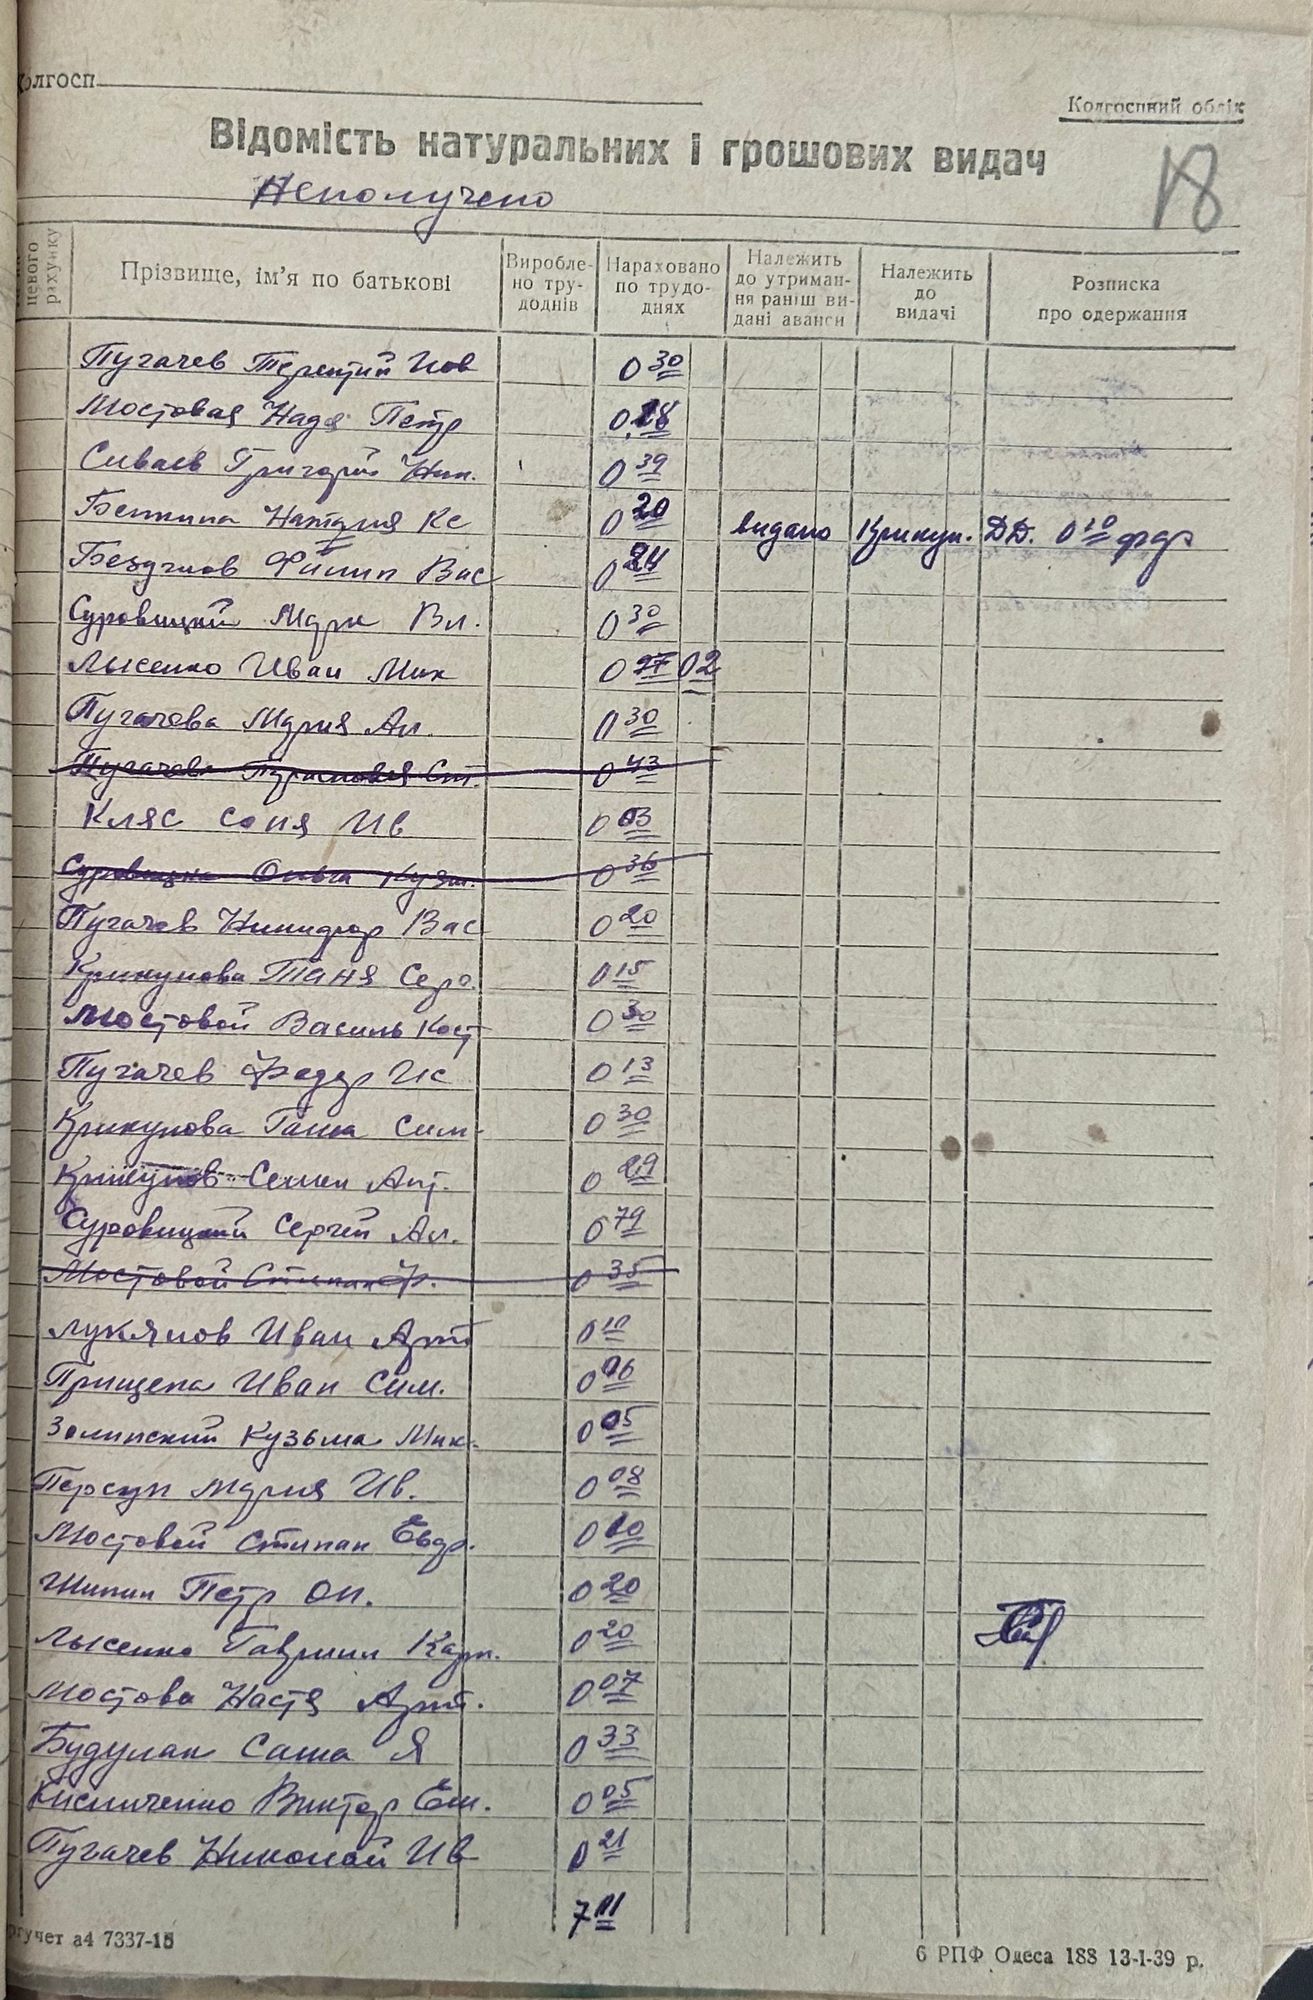 Колгосп
Колгоспний облік
Відомість натуральних і грошових видач
18
Неполучено
цевого рахунку
Прізвище, ім'я по батькові
Виробле-но тру-доднів
Нараховано по трудо-днях
Належить до утриман-ня раніш ви-дані аванси
Належить до видачі
Розписка про одержання
Пугачев Терентий Иов 0 30
Мостовая Надя Петр 0,28
Сиваев Григорий Ник. 0 39
Беткина Наталия Кс 0 20 видано Крикун. ДД. 0 10
Безуглов Филип Вас 0 24
Суровицкий Марк Вл. 0 30
Лысенко Иван Мик 0 27 02
Пугачева Мария Ал. 0 30
Пугачева Ст. 0 43
Кляс Соня Ив 0 03
Суровицка Ольга Кузм. 0 36
Пугачев Никифор Вас 0 20
Крикунова Таня Серг. 0 15
Мостовой Василь Кост 0 30
Пугачев Федор Ис 0 13
Крикунова Гаша Сим. 0 30
Крикунов Семен Ант. 0 29
Суровицкий Сергей Ал. 0 79
Мостовой Стипан Ф. 0 35
Лукянов Иван Арт 0 10
Прищепа Иван Сим. 0 06
Золинский Кузьма Мик. 0 05
Персун Мария Ив. 0 08
Мостовой Стипан Евдр. 0 10
Шипил Петр Ол. 0 20
Лысенко Гавриил Карп. 0 20
Мостова Настя Арт. 0 07
Будулак Саша Я 0 33
Кисличенко Виктор Ем. 0 05
Пугачев Николай Ив 0 21
7 11
ргучет а4 7337-15
6 РПФ Одеса 188 13-I-39 р.